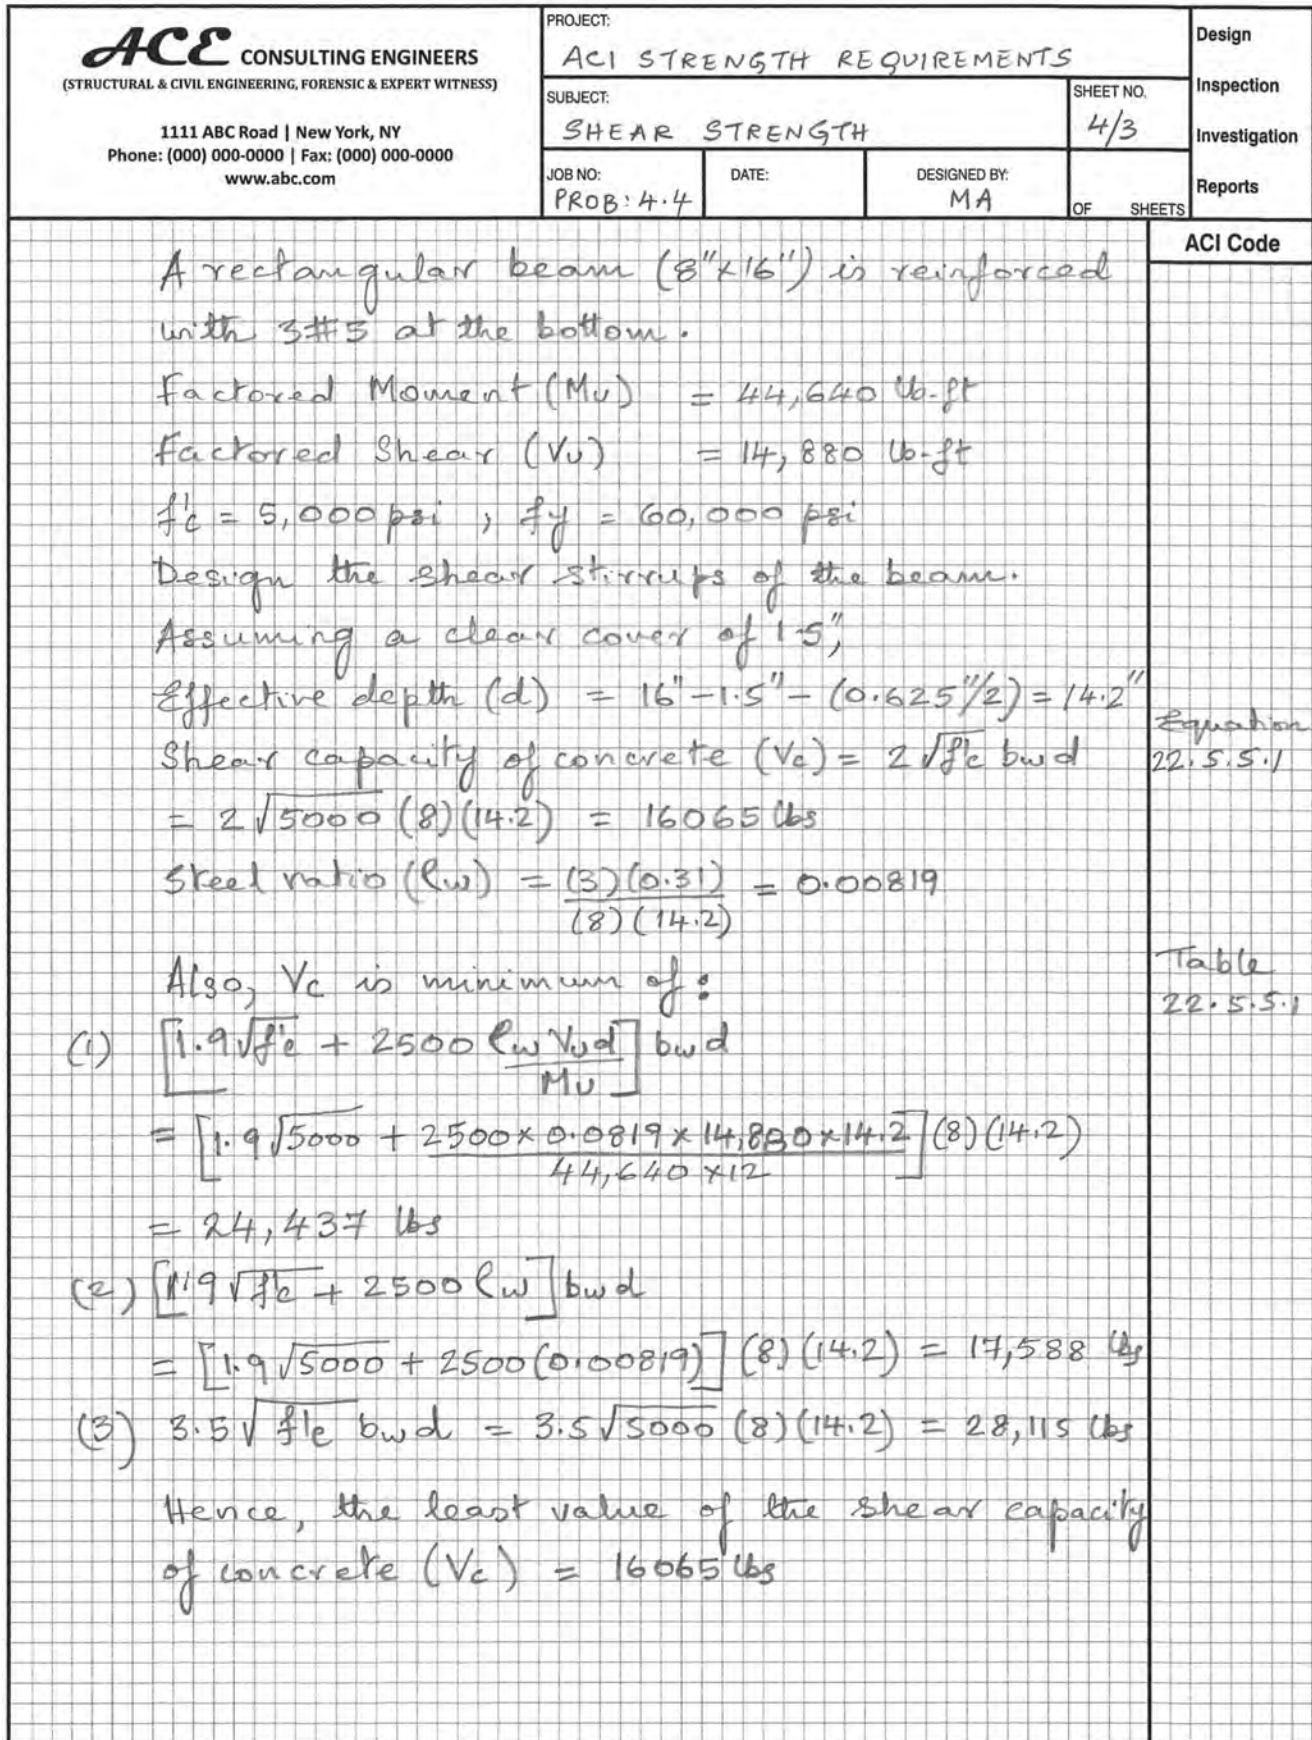 ACE CONSULTING ENGINEERS
(STRUCTURAL & CIVIL ENGINEERING, FORENSIC & EXPERT WITNESS)
1111 ABC Road | New York, NY
Phone: (000) 000-0000 | Fax: (000) 000-0000
www.abc.com
PROJECT:
ACI STRENGTH REQUIREMENTS
SUBJECT:
SHEAR STRENGTH
SHEET NO.
4/3
JOB NO:
PROB: 4.4
DATE:
DESIGNED BY:
MA
OF SHEETS
Design
Inspection
Investigation
Reports
ACI Code
A rectangular beam (8"x16") is reinforced
with 3#5 at the bottom.
Factored Moment (Mu) = 44,640 lb-ft
Factored Shear (Vu) = 14,880 lb-ft
f'c = 5,000 psi ; fy = 60,000 psi
Design the shear stirrups of the beam.
Assuming a clear cover of 1.5",
Effective depth (d) = 16" - 1.5" - (0.625"/2) = 14.2"
Shear capacity of concrete (Vc) = 2 √f'c bwd
Equation
22.5.5.1
= 2 √5000 (8)(14.2) = 16065 lbs
Steel ratio (ρw) = (3)(0.31) / (8)(14.2) = 0.00819
Also, Vc is minimum of:
Table
22.5.5.1
(1) [1.9 √f'c + 2500 ρw Vud / Mu] bwd
= [1.9 √5000 + 2500 x 0.0819 x 14,880 x 14.2 / 44,640 x 12] (8)(14.2)
= 24,437 lbs
(2) [1.9 √f'c + 2500 ρw] bwd
= [1.9 √5000 + 2500 (0.00819)] (8)(14.2) = 17,588 lbs
(3) 3.5 √f'c bwd = 3.5 √5000 (8)(14.2) = 28,115 lbs
Hence, the least value of the shear capacity
of concrete (Vc) = 16065 lbs